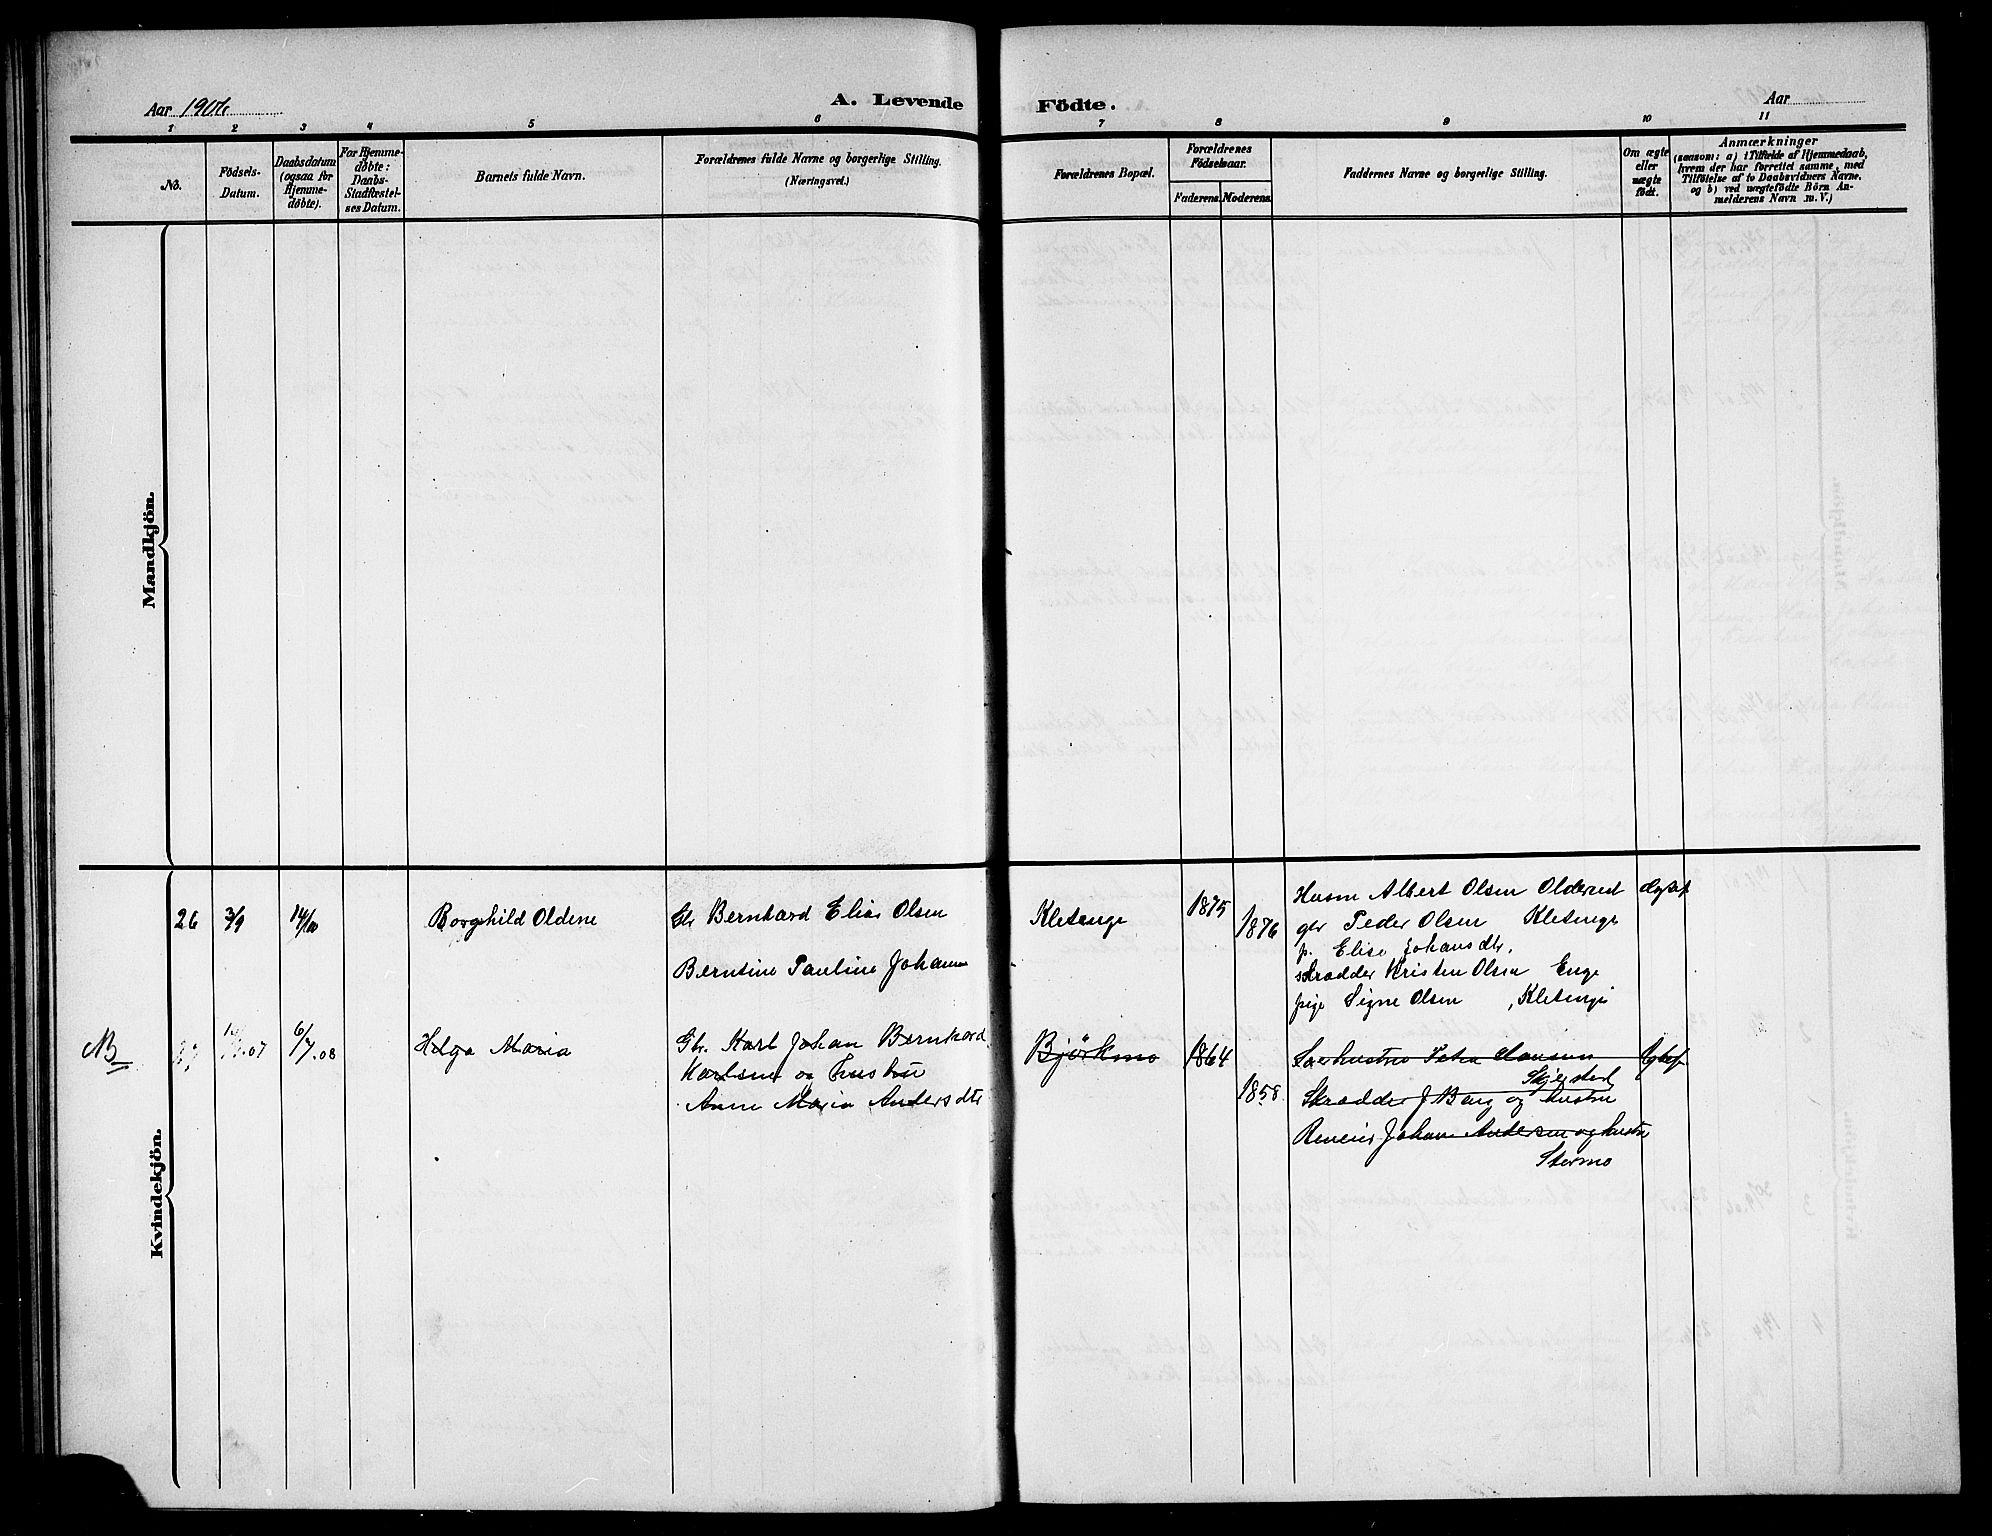 Aar 1906
A. Levende Födte.
Aar
1 2 3 4 5 6 7 8 9 10 11
No.
Födsels-
Datum.
Daabsdatum
(ogsaa for
Hjemme-
döbte).
For Hjemme-
döbte:
Daabs-
Stadfæstel-
ses Datum.
Barnets fulde Navn.
Forældrenes fulde Navne og borgerlige Stilling.
(Næringsvei.)
Forældrenes Bopæl.
Forældrenes
Födselsaar.
Faderens. Moderens.
Faddernes Navne og borgerlige Stilling.
Om ægte
eller
uægte
födt.
Anmærkninger
(saasom: a) i Tilfælde af Hjemmedaab,
hvem der har forrettet samme, med
Tilföielse af to Daabsvidners Navne.
og b) ved uægtefödte Börn An-
melderens Navn m. V.)
Mandkjön.
Kvindekjön.
26 3/9 14/10 Borghild Oldene
Gbr Bernhard Elias Olsen
Berntine Pauline Johanne
Kletenge 1875 1876
Husm Albert Olsen Oldereid
gbr Peder Olsen Kletenge
p. Elise Johansdtr,
skrædder Kristen Olsen Enge
pige Signe Olsen , Kletenge
NB 07 6/7.08 Helga Maria
Gbr. Karl Johan Bernhard
Karlsen og hustru
Anne Maria Andersdtr
Bjørkmo 1864 1858.
Petra Hansen
Skjerstad
Skrædder J Berg og hustru
Johan Andersen og hustru
Stormo